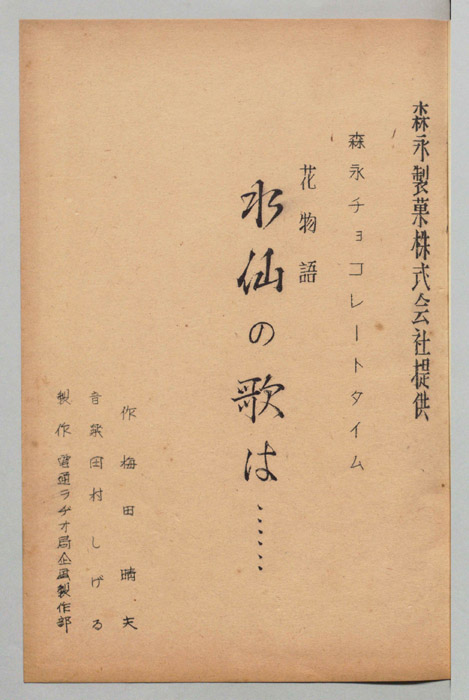 森永製菓株式会社提供
森永チョコレートタイム
花物語
水仙の歌は……
作 梅田晴夫
音楽 田村しげる
製作 電通ラヂオ局企画製作部